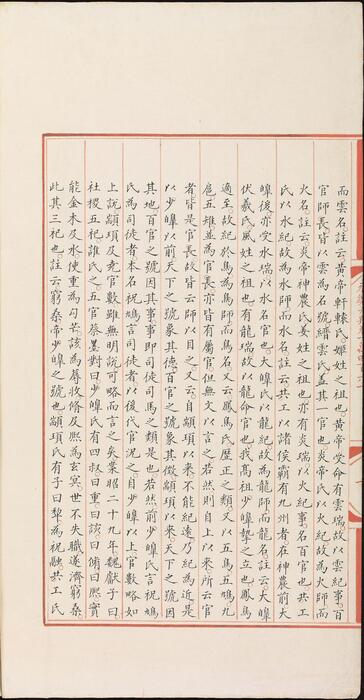 而雲名註云黃帝軒轅氏姬姓之祖也黃帝受命有雲瑞故以雲紀事百
官師長皆以雲為名號縉雲氏蓋其一官也炎帝氏以火紀故為火師而
火名註云炎帝神農氏姜姓之祖也亦有火瑞以火紀事名百官也共工
氏以水紀故為水師而水名註云共工以諸侯霸有九州者在神農前大
皥後亦受水瑞以水名官也大皥氏以龍紀故為龍師而龍名註云大皥
伏羲氏風姓之祖也有龍瑞故以龍命官也我髙祖少皥摯之立也鳳鳥
適至故紀於鳥為鳥師而鳥名又云鳳鳥氏歷正之類又以五鳥五鳩九
扈五雉並為官長亦皆有屬官但無文以言之若然則自上以來所云官
者皆是官長故皆云師以目之又云自顓頊以來不能紀遠乃紀為近是
以少皥以前天下之號象其德百官之號象其徴顓頊以來天下之號因
其地百官之號因其事事即司徒司馬之類是也若然前少皥氏言祝鳩
氏為司徒者本名祝鳩言司徒者以後代官況之自少皥以上官數略如
上說顓頊及堯官數雖無明說可略而言之矣案昭二十九年魏獻子曰
社稷五祀誰氏之五官蔡墨對曰少皥氏有四叔曰重曰該曰脩曰熈實
能金木及水使重為勾芒該為蓐收脩及熈為玄冥世不失職遂濟窮桑
此其三祀也註云窮桑帝少皥之號也顓頊氏有子曰犂為祝融共工氏